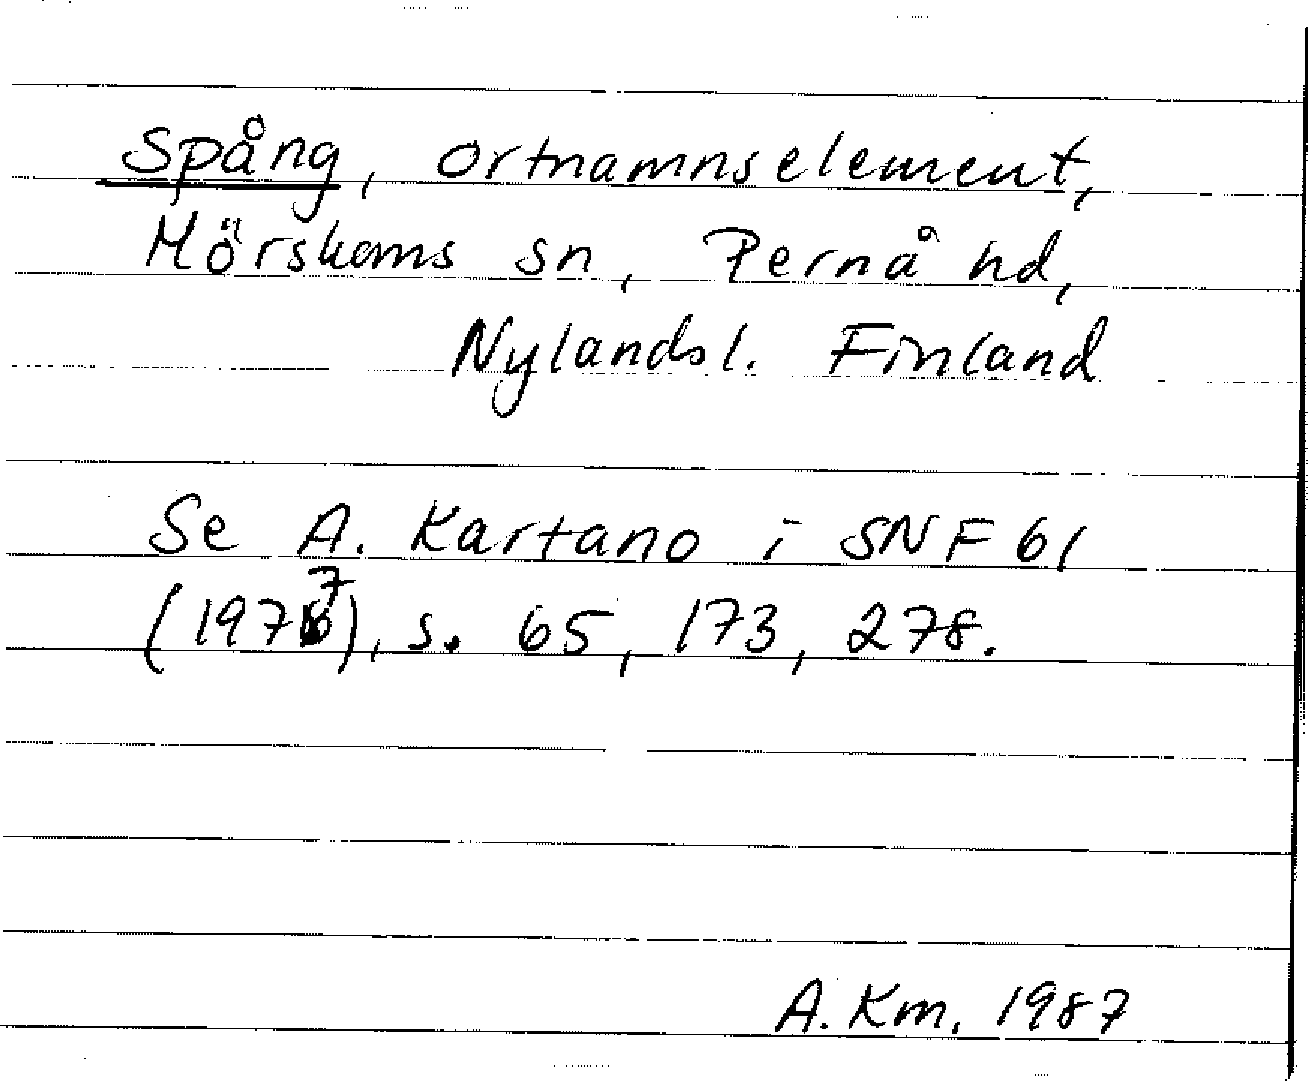 Spång, ortnamnselement,
Mörskoms sn, Pernå hd,
Nylandsl. Finland
Se A. Kartano i SNF 61
(1977), s. 65, 173, 278.
A. Km. 1987